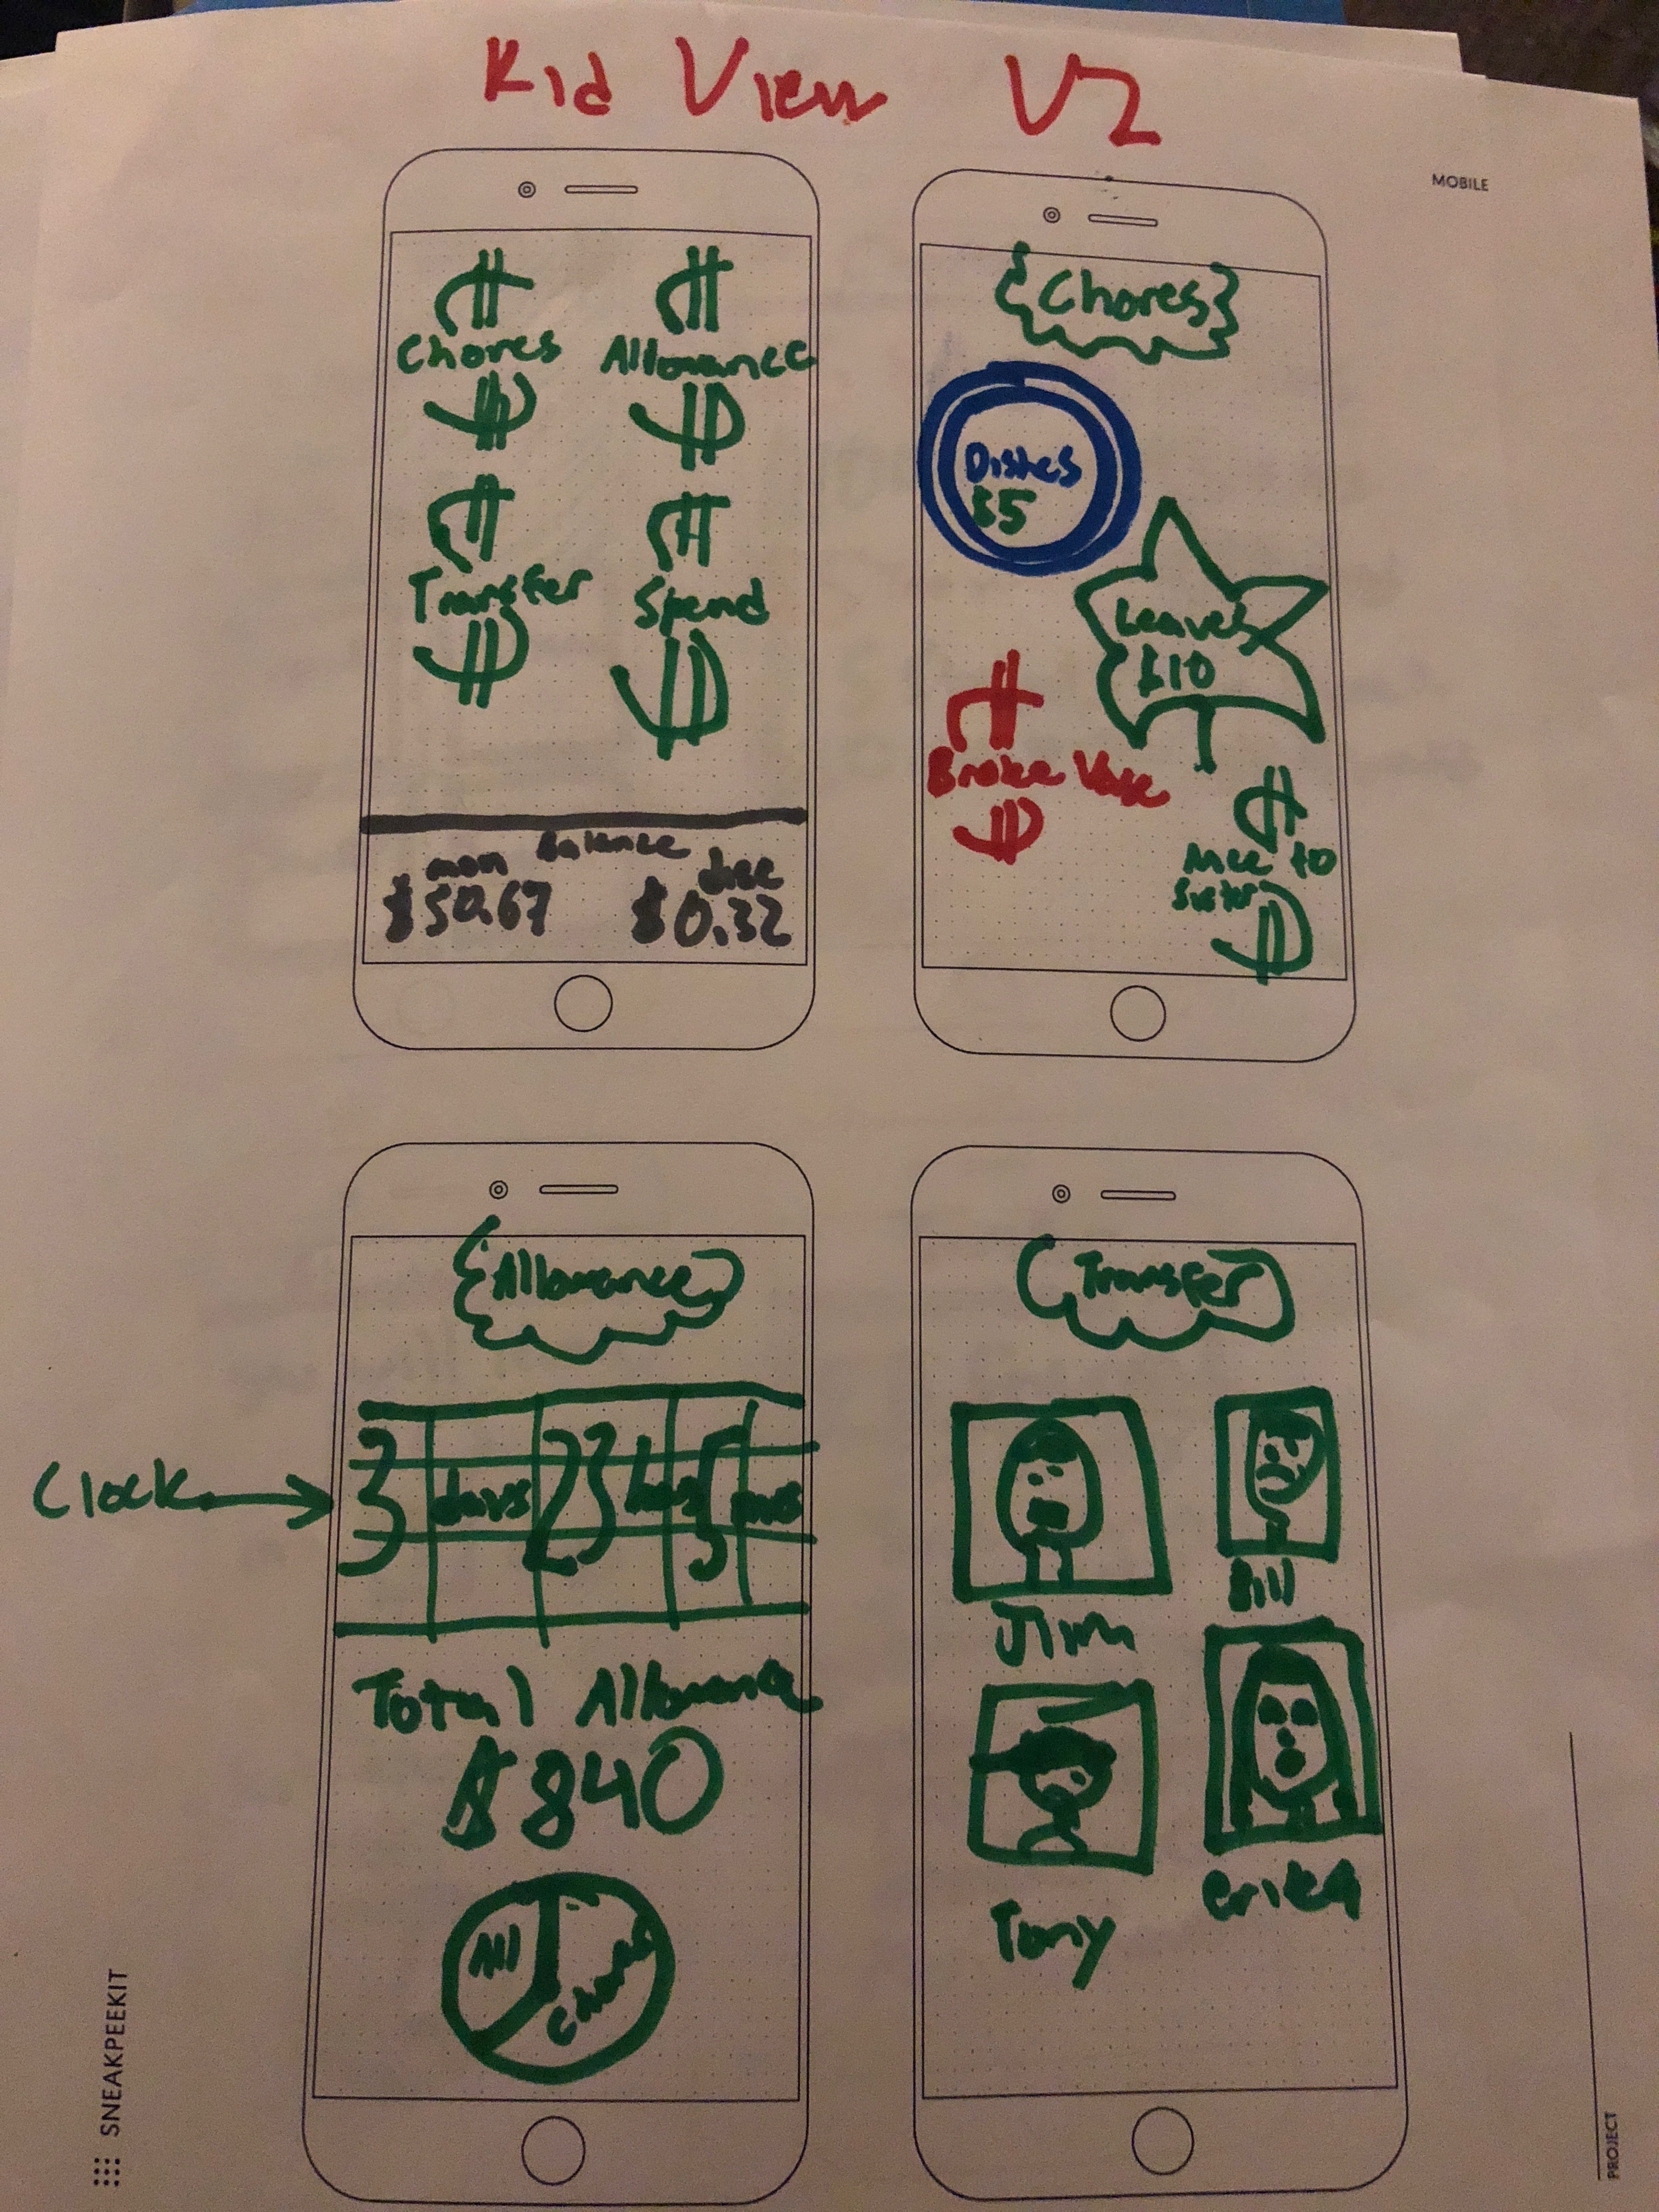 Kid View V2
MOBILE
$ Chores $
$ Allowance $
$ Transfer $
$ Spend $
Balance
mom
$50.67
$0.32
{Chores}
Dishes
$5
Leaves
$10
$
Broke Vase
$
$
Nice to
Sister
$
{Allowance}
Clock
3 days 23 hrs 5 mns
Total Allowance
$840
All
Chores
Transfer
Jim
Bill
Tony
erikA
SNEAKPEEKIT
PROJECT